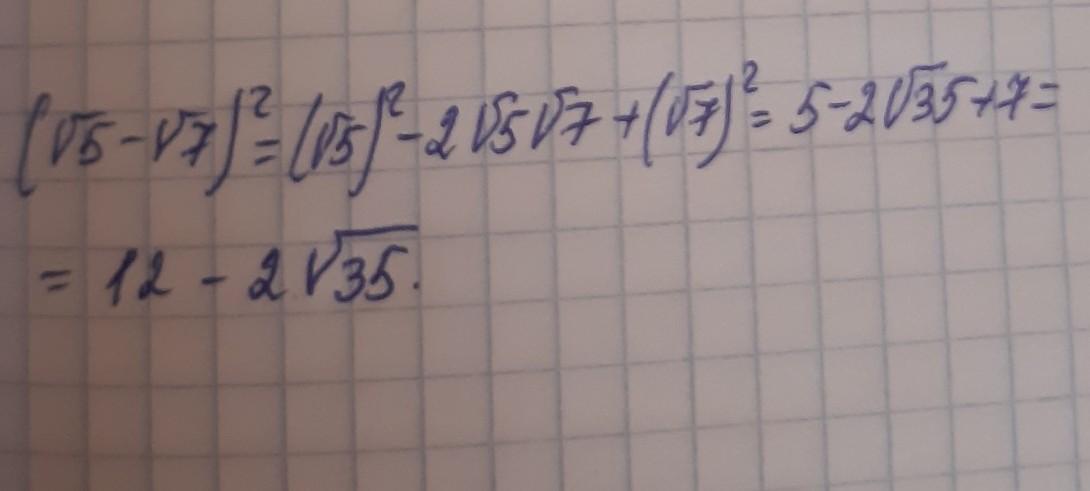 (√5-√7)²=(√5)²-2√5√7+(√7)²=5-2√35+7=
=12-2√35.